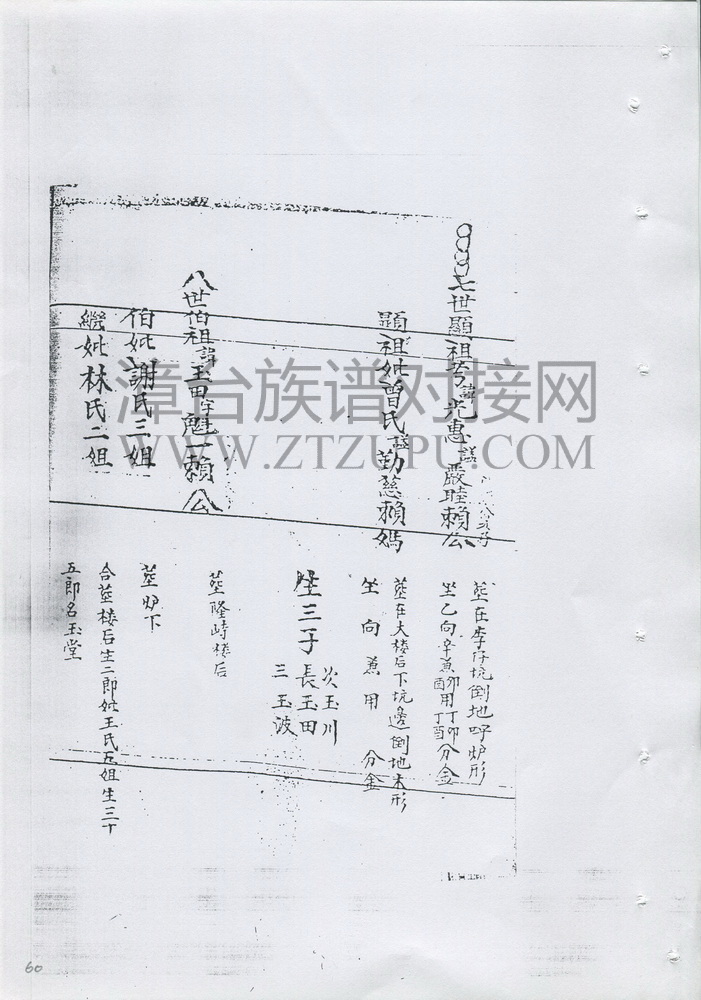 七世顯祖考諱光惠諡嚴睦賴公
顯祖妣曾氏諡勤慈賴媽
八世伯祖諱玉田字魁一賴公
伯妣謝氏三姐
繼妣林氏二姐
葬在李仔坑倒地呼炉形
坐乙向辛兼卯酉用丁卯丁酉分金
葬在大楼后下坑邊倒地木形
坐 向 兼 用 分金
坐三子長玉田
次玉川
三玉波
葬隆峙楼后
葬炉下
合葬楼后生二郎妣王氏五姐生三丁
五郎名玉堂
漳台族谱对接网
WWW.ZTZUPU.COM
60